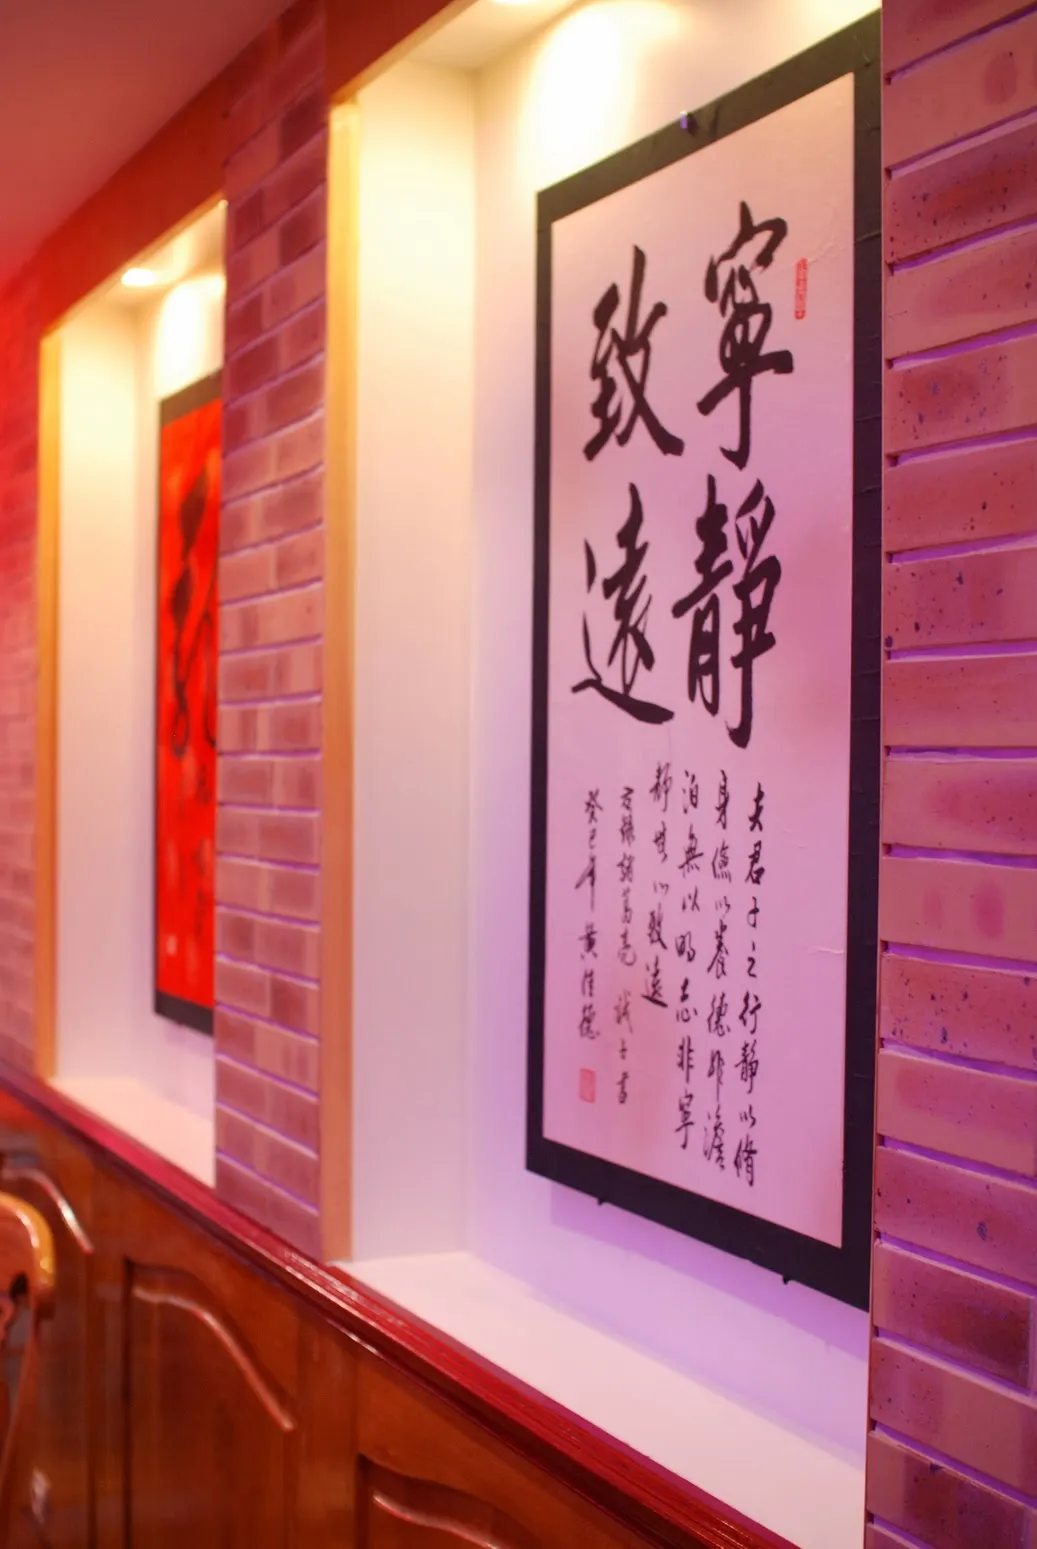 寧靜
致遠
夫君子之行靜以脩
身儉以養德非澹
泊無以明志非寧
靜無以致遠
右錄諸葛亮 誡子書
癸巳年 黃佳德